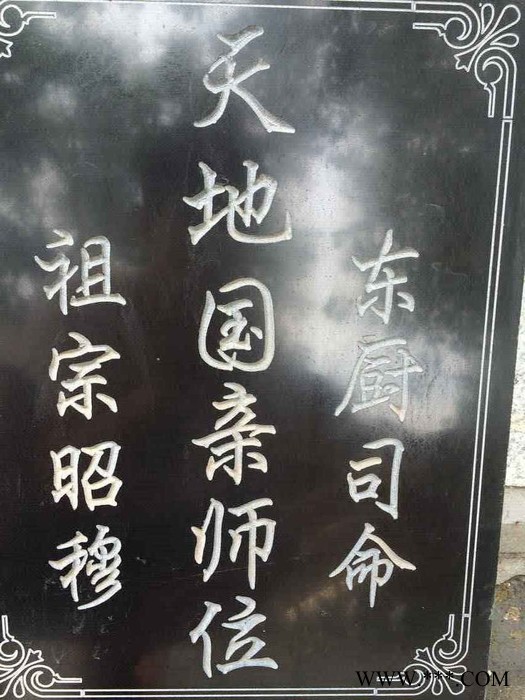 东厨司命
天地国亲师位
祖宗昭穆